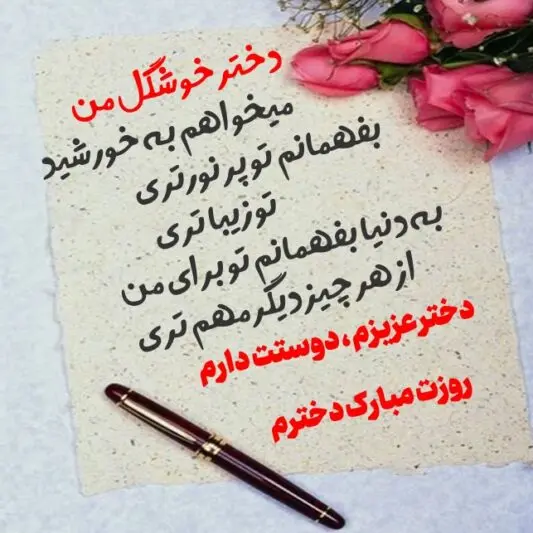 دختر خوشگل من
میخواهم به خورشید
بفهمانم تو پر نورتری
تو زیباتری
به دنیا بفهمانم تو برای من
از هر چیز دیگر مهم تری
دختر عزیزم، دوستت دارم
روزت مبارک دخترم